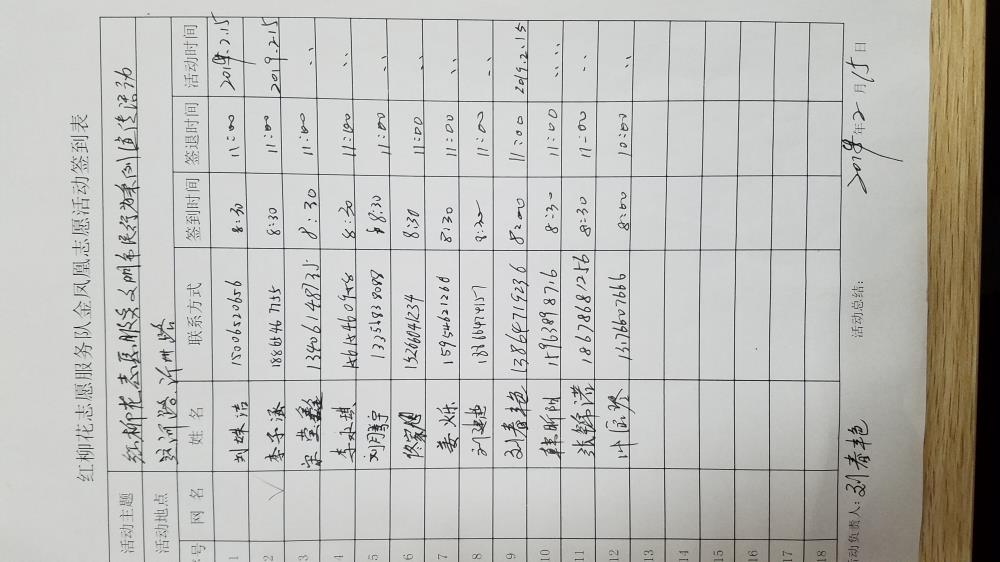 红柳花志愿服务队金凤凰志愿活动签到表
活动主题 红柳花志愿服务文明市民行为案例宣传活动
活动地点 运河路沂州路
序号 网名 姓名 联系方式 签到时间 签退时间 活动时间
1 刘姝洁 15006520656 8:30 11:00 2019.2.15
2 李子涵 18865467155 8:30 11:00 2019.2.15
3 13406148735 8:30 11:00 〃
4 李永琪 8:30 11:00 〃
5 刘腾宇 13356838088 8:30 11:00 〃
6 佟家旭 15266041234 8:30 11:00 〃
7 姜烁 15954621268 8:30 11:00 〃
8 刘建忠 8:30 11:00 〃
9 刘春艳 13864719236 8:00 11:00 2019.2.15
10 韩昕阳 15963898716 8:30 11:00 〃
11 张锦诺 18678681256 8:30 11:00 〃
12 13176607666 8:00 10:00 〃
13
14
15
16
17
18
活动负责人:刘春艳 活动总结: 2019年2月15日